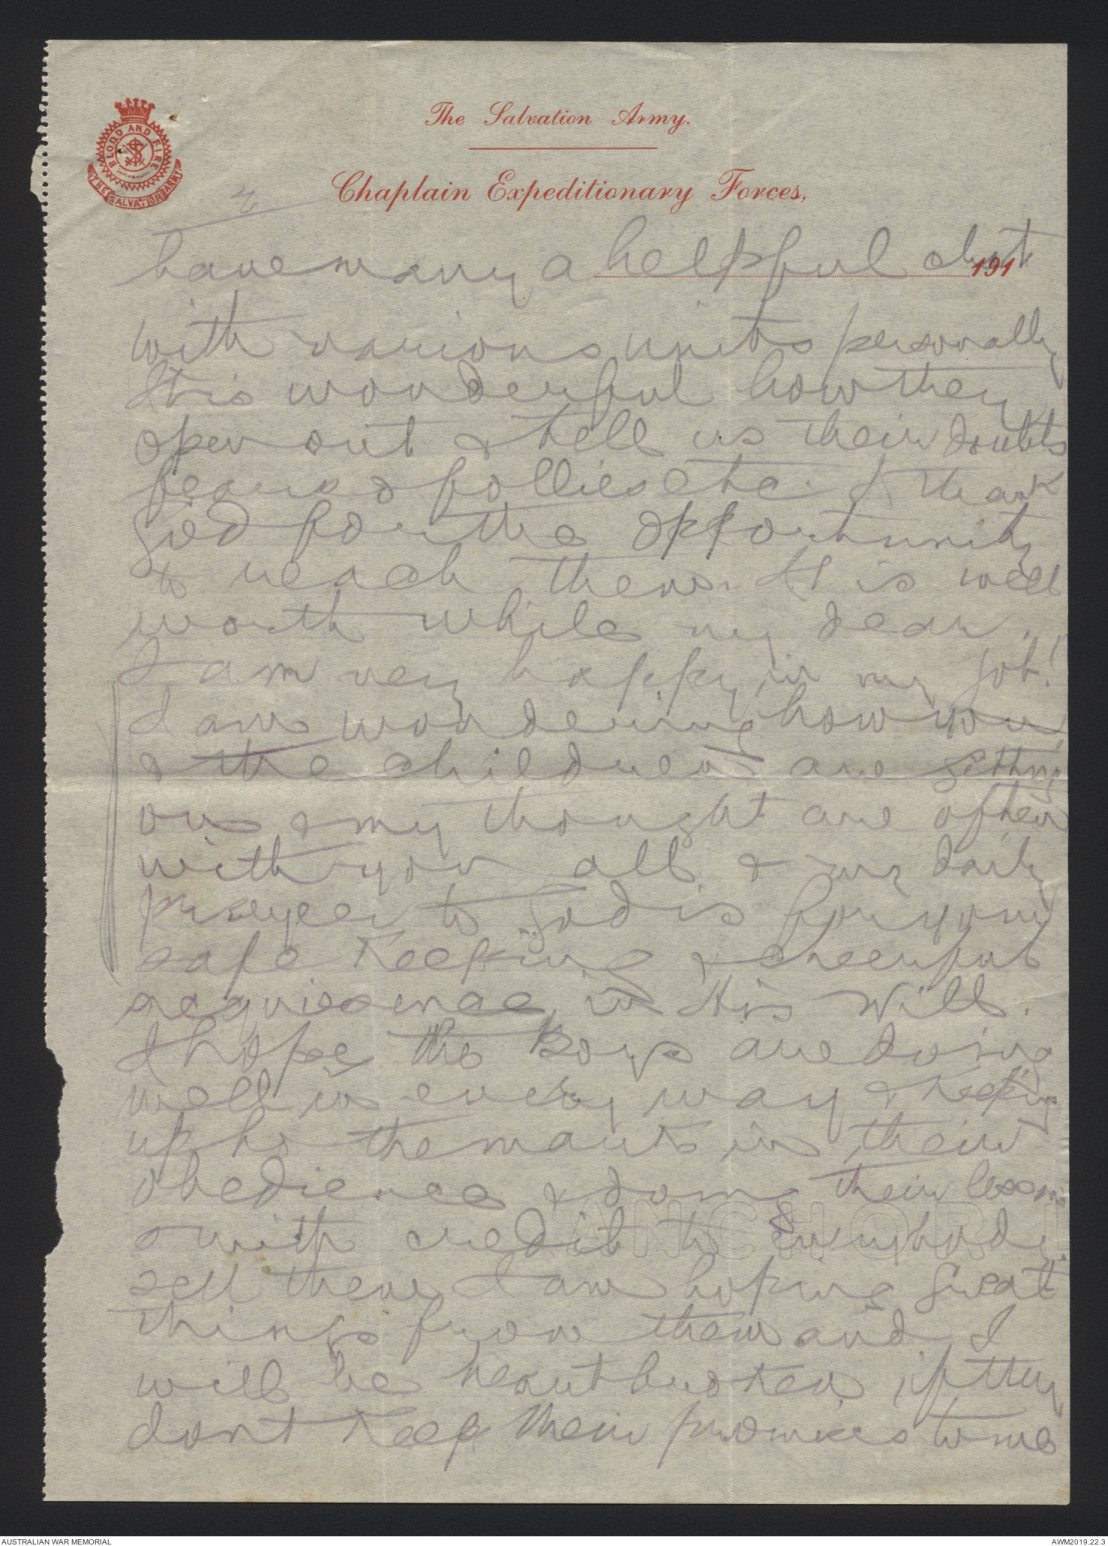 The Salvation Army.
BLOOD AND FIRE
THE SALVATION ARMY
Chaplain Expeditionary Forces,
2
191
have many a helpful chat
with various units personally
It is wonderful how they
open out & tell us their doubts
fears & follies etc. I thank
God for the opportunity
to reach them. It is well
worth while my dear.
I am very happy in my job!
I am wondering how you
& the children are getting
on & my thought are often
with you all & my daily
prayer to God is for your
safe keeping & cheerful
acquiescence in His Will.
I hope the Boys are doing
well in every way & keeping
up to the mark in their
obedience & doing their lessons
with credit to Everybody
tell them I am hoping great
things from them and I
will be heart broken if they
dont keep their promises to me
ANCHOR
AUSTRALIAN WAR MEMORIAL
AWM2019.22.3